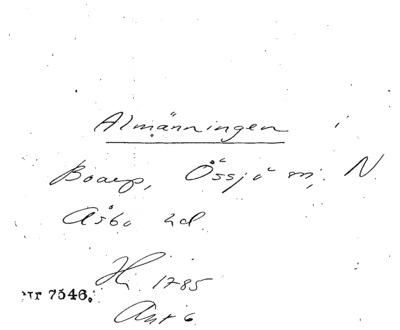 Almänningen
Boarp, Össjö sn, N
Åsbo hd
Hi 1785
Nr 7546. Akt 6